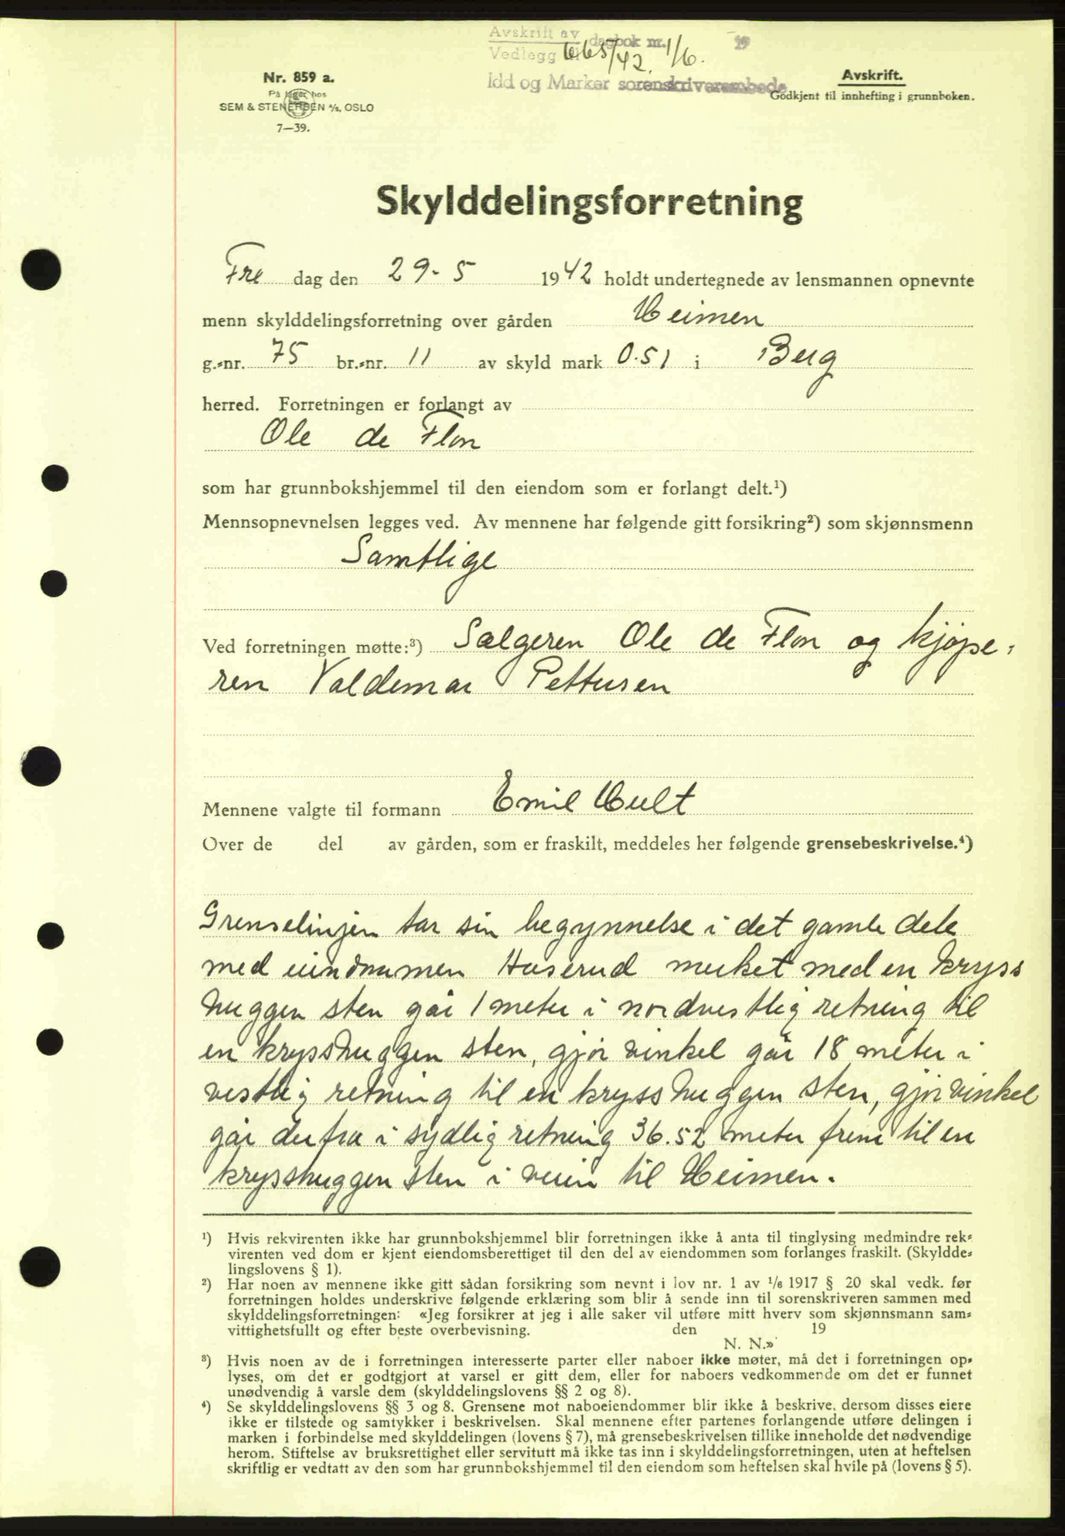 Avskrift av dagbok nr. 1/6. 19
Vedlegg 665/42.
Idd og Marker sorenskriverembede
Nr. 859 a.
På lager hos
SEM & STENERSEN A/S, OSLO
7—39.
Avskrift.
Godkjent til innhefting i grunnboken.
Skylddelingsforretning
Fre dag den 29-5 1942 holdt undertegnede av lensmannen opnevnte
menn skylddelingsforretning over gården Heimen
g.-nr. 75 br.-nr. 11 av skyld mark 0.51 i Berg
herred. Forretningen er forlangt av
Ole de Flon
som har grunnbokshjemmel til den eiendom som er forlangt delt.¹)
Mennsopnevnelsen legges ved. Av mennene har følgende gitt forsikring²) som skjønnsmenn
Samtlige
Ved forretningen møtte:³) Sælgeren Ole de Flon og kjøpe-
ren Valdemar Pettersen
Mennene valgte til formann Emil Hult
Over de del av gården, som er fraskilt, meddeles her følgende grensebeskrivelse.⁴)
Grenselinjen tar sin begynnelse i det gamle dele
med eiendommen Haserud merket med en kryss
huggen sten går 1 meter i nordvestlig retning til
en krysshuggen sten, gjør vinkel går 18 meter i
vestlig retning til en krysshuggen sten, gjør vinkel
går derfra i sydlig retning 36.52 meter frem til en
krysshuggen sten i veien til Heimen.
¹) Hvis rekvirenten ikke har grunnbokshjemmel blir forretningen ikke å anta til tinglysing medmindre rek-
virenten ved dom er kjent eiendomsberettiget til den del av eiendommen som forlanges fraskilt. (Skyldde-
lingslovens § 1).
²) Har noen av mennene ikke gitt sådan forsikring som nevnt i lov nr. 1 av 1/6 1917 § 20 skal vedk. før
forretningen holdes underskrive følgende erklæring som blir å sende inn til sorenskriveren sammen med
skylddelingsforretningen: «Jeg forsikrer at jeg i alle saker vil utføre mitt hverv som skjønnsmann sam-
vittighetsfullt og efter beste overbevisning. den 19
N. N.»
³) Hvis noen av de i forretningen interesserte parter eller naboer ikke møter, må det i forretningen op-
lyses, om det er godtgjort at varsel er gitt dem, eller for naboers vedkommende om det er funnet
unødvendig å varsle dem (skylddelingslovens §§ 2 og 8).
⁴) Se skylddelingslovens §§ 3 og 8. Grensene mot naboeiendommer blir ikke å beskrive, dersom disses eiere
ikke er tilstede og samtykker i beskrivelsen. Skal mennene efter partenes forlangende utføre delingen i
marken i forbindelse med skylddelingen (lovens § 7), må grensebeskrivelsen tillike inneholde det nødvendige
herom. Stiftelse av bruksrettighet eller servitutt må ikke tas inn i skylddelingsforretningen, uten at heftelsen
skriftlig er vedtatt av den som har grunnbokshjemmel til den eiendom som heftelsen skal hvile på (lovens § 5).